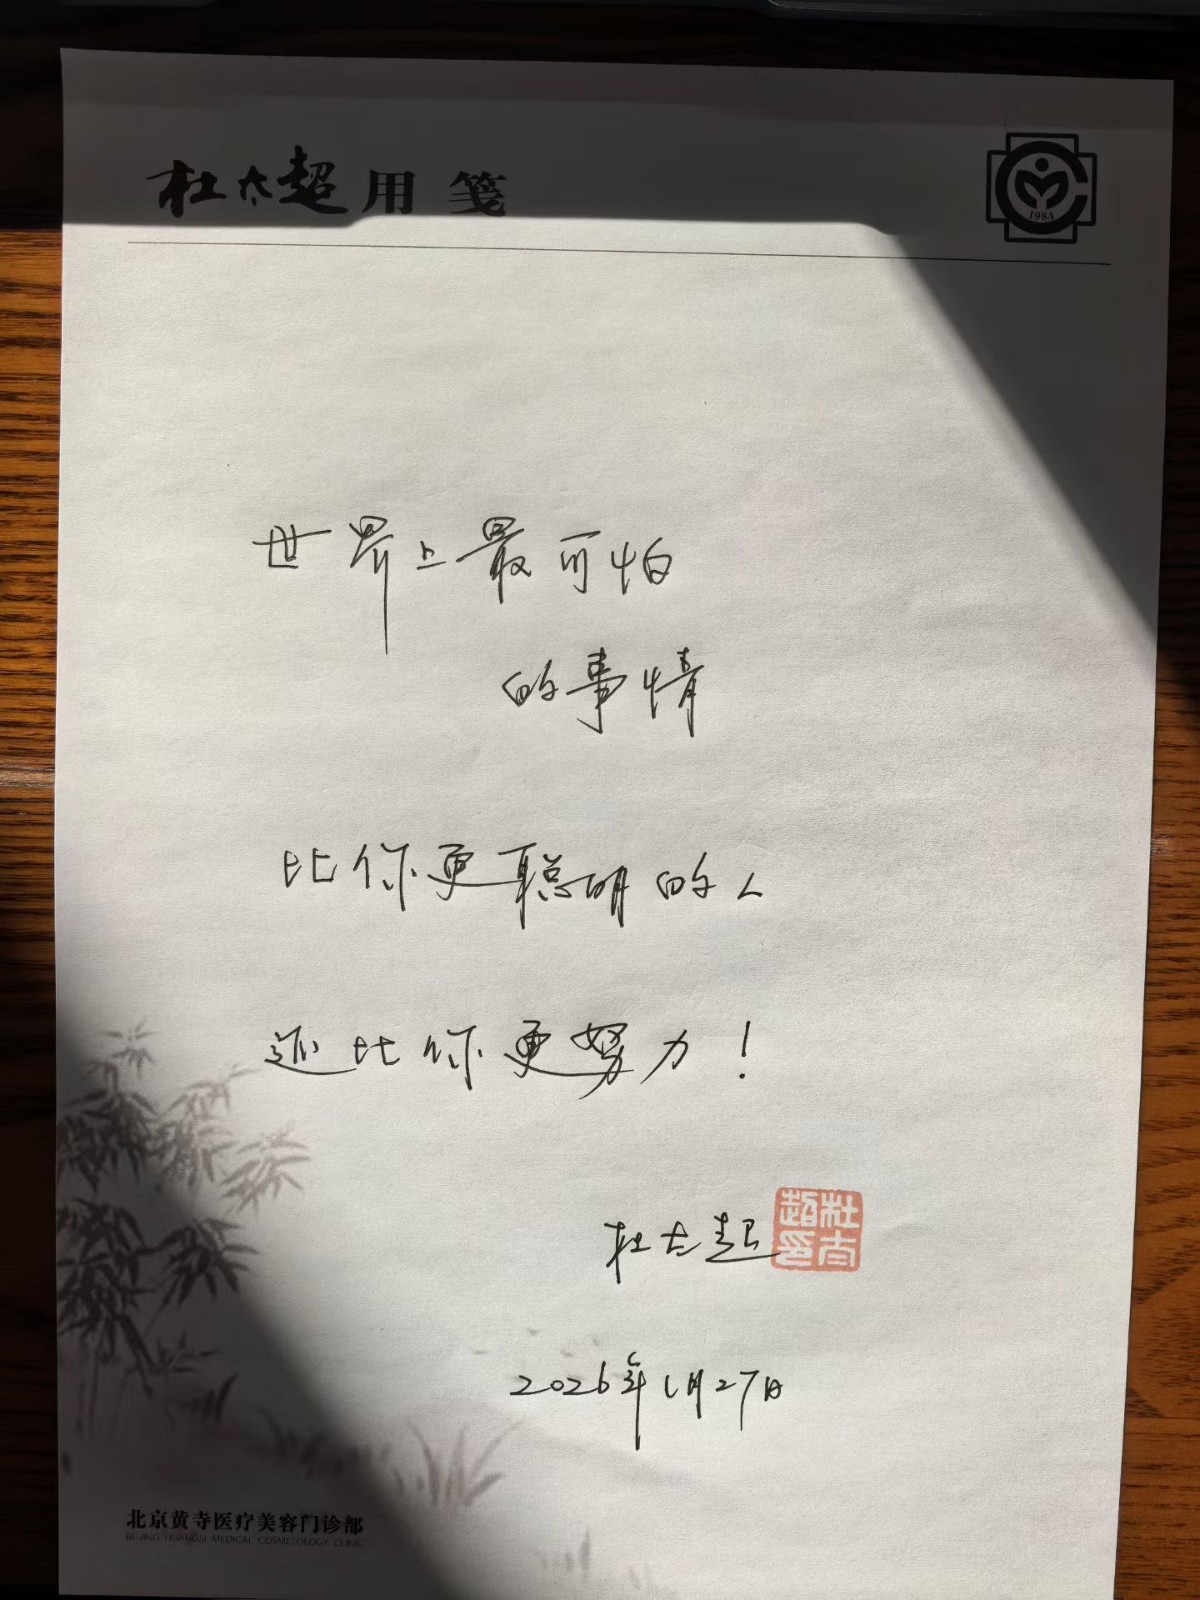 杜太超用笺
1984
世界上最可怕
的事情
比你更聪明的人
还比你更努力！
杜太超
杜太超印
2026年1月27日
北京黄寺医疗美容门诊部
BEIJING HUANGSI MEDICAL COSMETOLOGY CLINIC